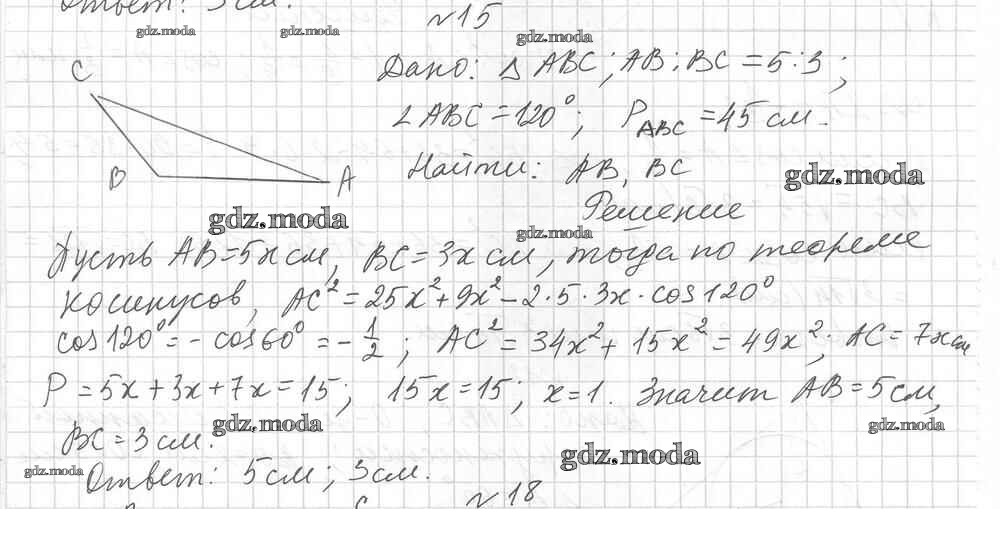 Ответ: 3 см.
№15
gdz.moda gdz.moda gdz.moda
C
Дано: Δ ABC; AB:BC = 5:3;
∠ABC = 120°; P ABC = 45 см.
B A
Найти: AB, BC
gdz.moda
Решение
gdz.moda gdz.moda
Пусть AB = 5x см, BC = 3x см, тогда по теореме
косинусов, AC² = 25x² + 9x² - 2·5·3x·cos120°
cos120° = - cos60° = - 1/2; AC² = 34x² + 15x² = 49x²; AC = 7x см
P = 5x + 3x + 7x = 15; 15x = 15; x = 1. Значит AB = 5 см,
BC = 3 см.
gdz.moda gdz.moda
gdz.moda
Ответ: 5 см; 3 см.
gdz.moda
№18